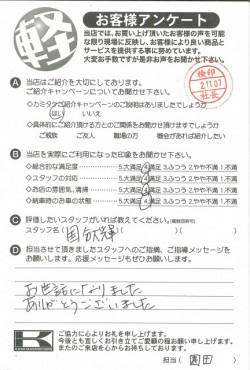 軽
お客様アンケート
当店では、お買い上げ頂いたお客様の声を可能
な限り現場に反映し、お客様により良い商品と
サービスを提供する事に努めています。
大変お手数ですが是非お声をお聞かせ下さい。
検印
21.1.07
社長
A 当店はご紹介を大切にしております。
ご紹介キャンペーンについてお聞かせ下さい。
◇カミタケでご紹介キャンペーンのご説明はありましたでしょうか
はい いいえ
◇具体的にご紹介頂ける方とのご関係をお聞かせ頂けますでしょうか
ご親族 ご友人 職場の方 機会があれば紹介したい
B 当店を実際にご利用になった印象をお聞かせ下さい。
◇総合的な満足度 5.大満足 4.満足 3.ふつう 2.やや不満 1.不満
◇スタッフの対応 5.大満足 4.満足 3.ふつう 2.やや不満 1.不満
◇お店の雰囲気、清掃 5.大満足 4.満足 3.ふつう 2.やや不満 1.不満
◇納車時のお車の状態 5.大満足 4.満足 3.ふつう 2.やや不満 1.不満
C 評価したいスタッフがいれば教えてください。(複数回答可)
スタッフ名( )
D 担当させて頂きましたスタッフへのご指摘、ご指導メッセージを
お願いします。応援メッセージもぜひお願いします。
お世話になりました
ありがとうございました
K
ご協力に心よりお礼を申し上げます。
今後とも宜しくお引き立てご愛顧の程お願い申し上げます。
またのご来店を心からお待ちしております。
担当( 園田 )